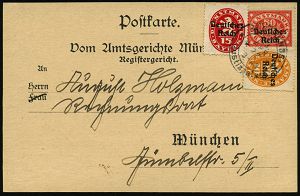 Postkarte.
Deutsches
Reich
15
Deutsches
Reich
Dom Amtsgerichte Mün
Registergericht.
Deutsches
Reich
An
Herrn
Frau
August Holzmann
Rechnungsrat
München
5/II